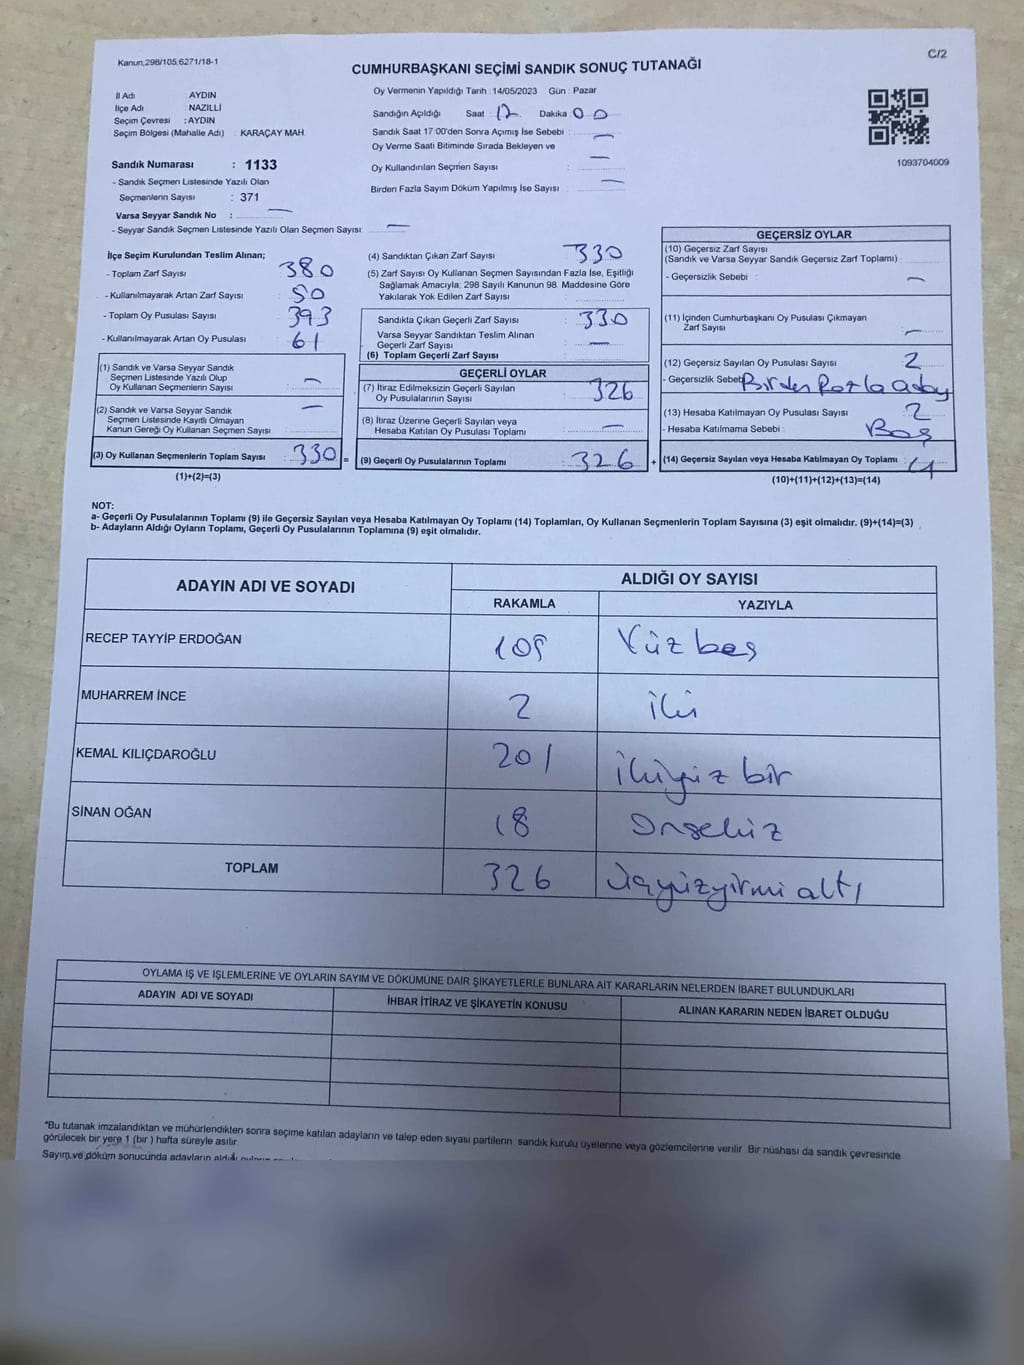 Kanun,298/105,6271/18-1
C/2
CUMHURBAŞKANI SEÇİMİ SANDIK SONUÇ TUTANAĞI
İl Adı : AYDIN
İlçe Adı : NAZİLLİ
Seçim Çevresi : AYDIN
Seçim Bölgesi (Mahalle Adı) : KARAÇAY MAH.
Sandık Numarası : 1133
- Sandık Seçmen Listesinde Yazılı Olan
Seçmenlerin Sayısı : 371
Varsa Seyyar Sandık No : —
- Seyyar Sandık Seçmen Listesinde Yazılı Olan Seçmen Sayısı: —
Oy Vermenin Yapıldığı Tarih : 14/05/2023 Gün : Pazar
Sandığın Açıldığı Saat : 17 Dakika : 00
Sandık Saat 17:00'den Sonra Açımış İse Sebebi : —
Oy Verme Saati Bitiminde Sırada Bekleyen ve
Oy Kullandırılan Seçmen Sayısı : —
Birden Fazla Sayım Döküm Yapılmış İse Sayısı : —
1093704009
İlçe Seçim Kurulundan Teslim Alınan;
- Toplam Zarf Sayısı : 380
- Kullanılmayarak Artan Zarf Sayısı : 50
- Toplam Oy Pusulası Sayısı : 393
- Kullanılmayarak Artan Oy Pusulası : 61
(1) Sandık ve Varsa Seyyar Sandık
Seçmen Listesinde Yazılı Olup
Oy Kullanan Seçmenlerin Sayısı : —
(2) Sandık ve Varsa Seyyar Sandık
Seçmen Listesinde Kayıtlı Olmayan
Kanun Gereği Oy Kullanan Seçmen Sayısı : —
(3) Oy Kullanan Seçmenlerin Toplam Sayısı : 330 =
(1)+(2)=(3)
(4) Sandıktan Çıkan Zarf Sayısı : 330
(5) Zarf Sayısı Oy Kullanan Seçmen Sayısından Fazla İse, Eşitliği
Sağlamak Amacıyla; 298 Sayılı Kanunun 98. Maddesine Göre
Yakılarak Yok Edilen Zarf Sayısı :
Sandıkta Çıkan Geçerli Zarf Sayısı : 330
Varsa Seyyar Sandıktan Teslim Alınan
Geçerli Zarf Sayısı : —
(6) Toplam Geçerli Zarf Sayısı :
GEÇERLİ OYLAR
(7) İtiraz Edilmeksizin Geçerli Sayılan
Oy Pusulalarının Sayısı : 326
(8) İtiraz Üzerine Geçerli Sayılan veya
Hesaba Katılan Oy Pusulası Toplamı : —
(9) Geçerli Oy Pusulalarının Toplamı : 326 +
GEÇERSİZ OYLAR
(10) Geçersiz Zarf Sayısı
(Sandık ve Varsa Seyyar Sandık Geçersiz Zarf Toplamı) :
- Geçersizlik Sebebi : —
(11) İçinden Cumhurbaşkanı Oy Pusulası Çıkmayan
Zarf Sayısı : —
(12) Geçersiz Sayılan Oy Pusulası Sayısı : 2
- Geçersizlik Sebebi Birden Fazla aday
(13) Hesaba Katılmayan Oy Pusulası Sayısı : 2
- Hesaba Katılmama Sebebi : Boş
(14) Geçersiz Sayılan veya Hesaba Katılmayan Oy Toplamı : 4
(10)+(11)+(12)+(13)=(14)
NOT:
a- Geçerli Oy Pusulalarının Toplamı (9) ile Geçersiz Sayılan veya Hesaba Katılmayan Oy Toplamı (14) Toplamları, Oy Kullanan Seçmenlerin Toplam Sayısına (3) eşit olmalıdır. (9)+(14)=(3)
b- Adayların Aldığı Oyların Toplamı, Geçerli Oy Pusulalarının Toplamına (9) eşit olmalıdır.
ADAYIN ADI VE SOYADI ALDIĞI OY SAYISI
RAKAMLA YAZIYLA
RECEP TAYYİP ERDOĞAN 105 Yüz beş
MUHARREM İNCE 2 iki
KEMAL KILIÇDAROĞLU 201 ikiyüz bir
SİNAN OĞAN 18 Onsekiz
TOPLAM 326 üçyüzyirmi altı
OYLAMA İŞ VE İŞLEMLERİNE VE OYLARIN SAYIM VE DÖKÜMÜNE DAİR ŞİKAYETLERLE BUNLARA AİT KARARLARIN NELERDEN İBARET BULUNDUKLARI
ADAYIN ADI VE SOYADI İHBAR İTİRAZ VE ŞİKAYETİN KONUSU ALINAN KARARIN NEDEN İBARET OLDUĞU
*Bu tutanak imzalandıktan ve mühürlendikten sonra seçime katılan adayların ve talep eden siyasi partilerin sandık kurulu üyelerine veya gözlemcilerine verilir. Bir nüshası da sandık çevresinde
görülecek bir yere 1 (bir) hafta süreyle asılır.
Sayım ve döküm sonucunda adayların aldığı